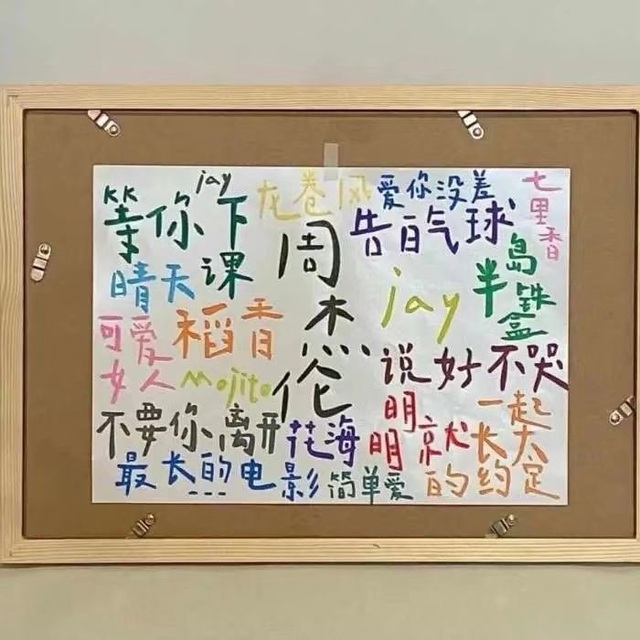 jay
等你下课
龙卷风
爱你没差
七里香
周杰伦
告白气球
晴天
jay
半岛铁盒
可爱女人
稻香
说好不哭
Mojito
不要你离开
花海
明明就
一起长大的约定
最长的电影
简单爱